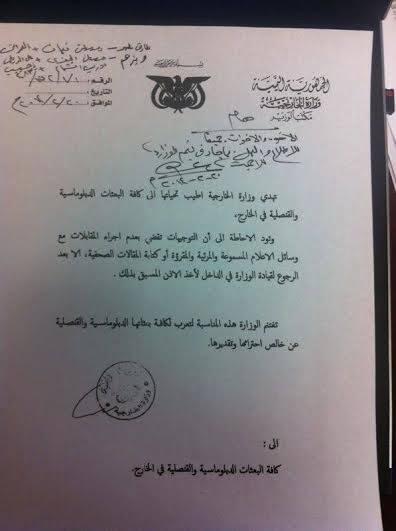 الجمهورية اليمنية
وزارة الخارجية
مكتب الوزير
الرقم:
التاريخ:
الموافق:
هام
الاخوة والاخوات جميعاً
تهدي وزارة الخارجية اطيب تحياتها الى كافة البعثات الدبلوماسية
والقنصلية في الخارج،
وتود الاحاطة الى أن التوجيهات تقضي بعدم اجراء المقابلات مع
وسائل الاعلام المسموعة والمرئية والمقرؤة أو كتابة المقالات الصحفية، الا بعد
الرجوع لقيادة الوزارة في الداخل لأخذ الاذن المسبق بذلك.
تغتنم الوزارة هذه المناسبة لتعرب لكافة بعثاتها الدبلوماسية والقنصلية
عن خالص احترامها وتقديرها.
الى:
كافة البعثات الدبلوماسية والقنصلية في الخارج.